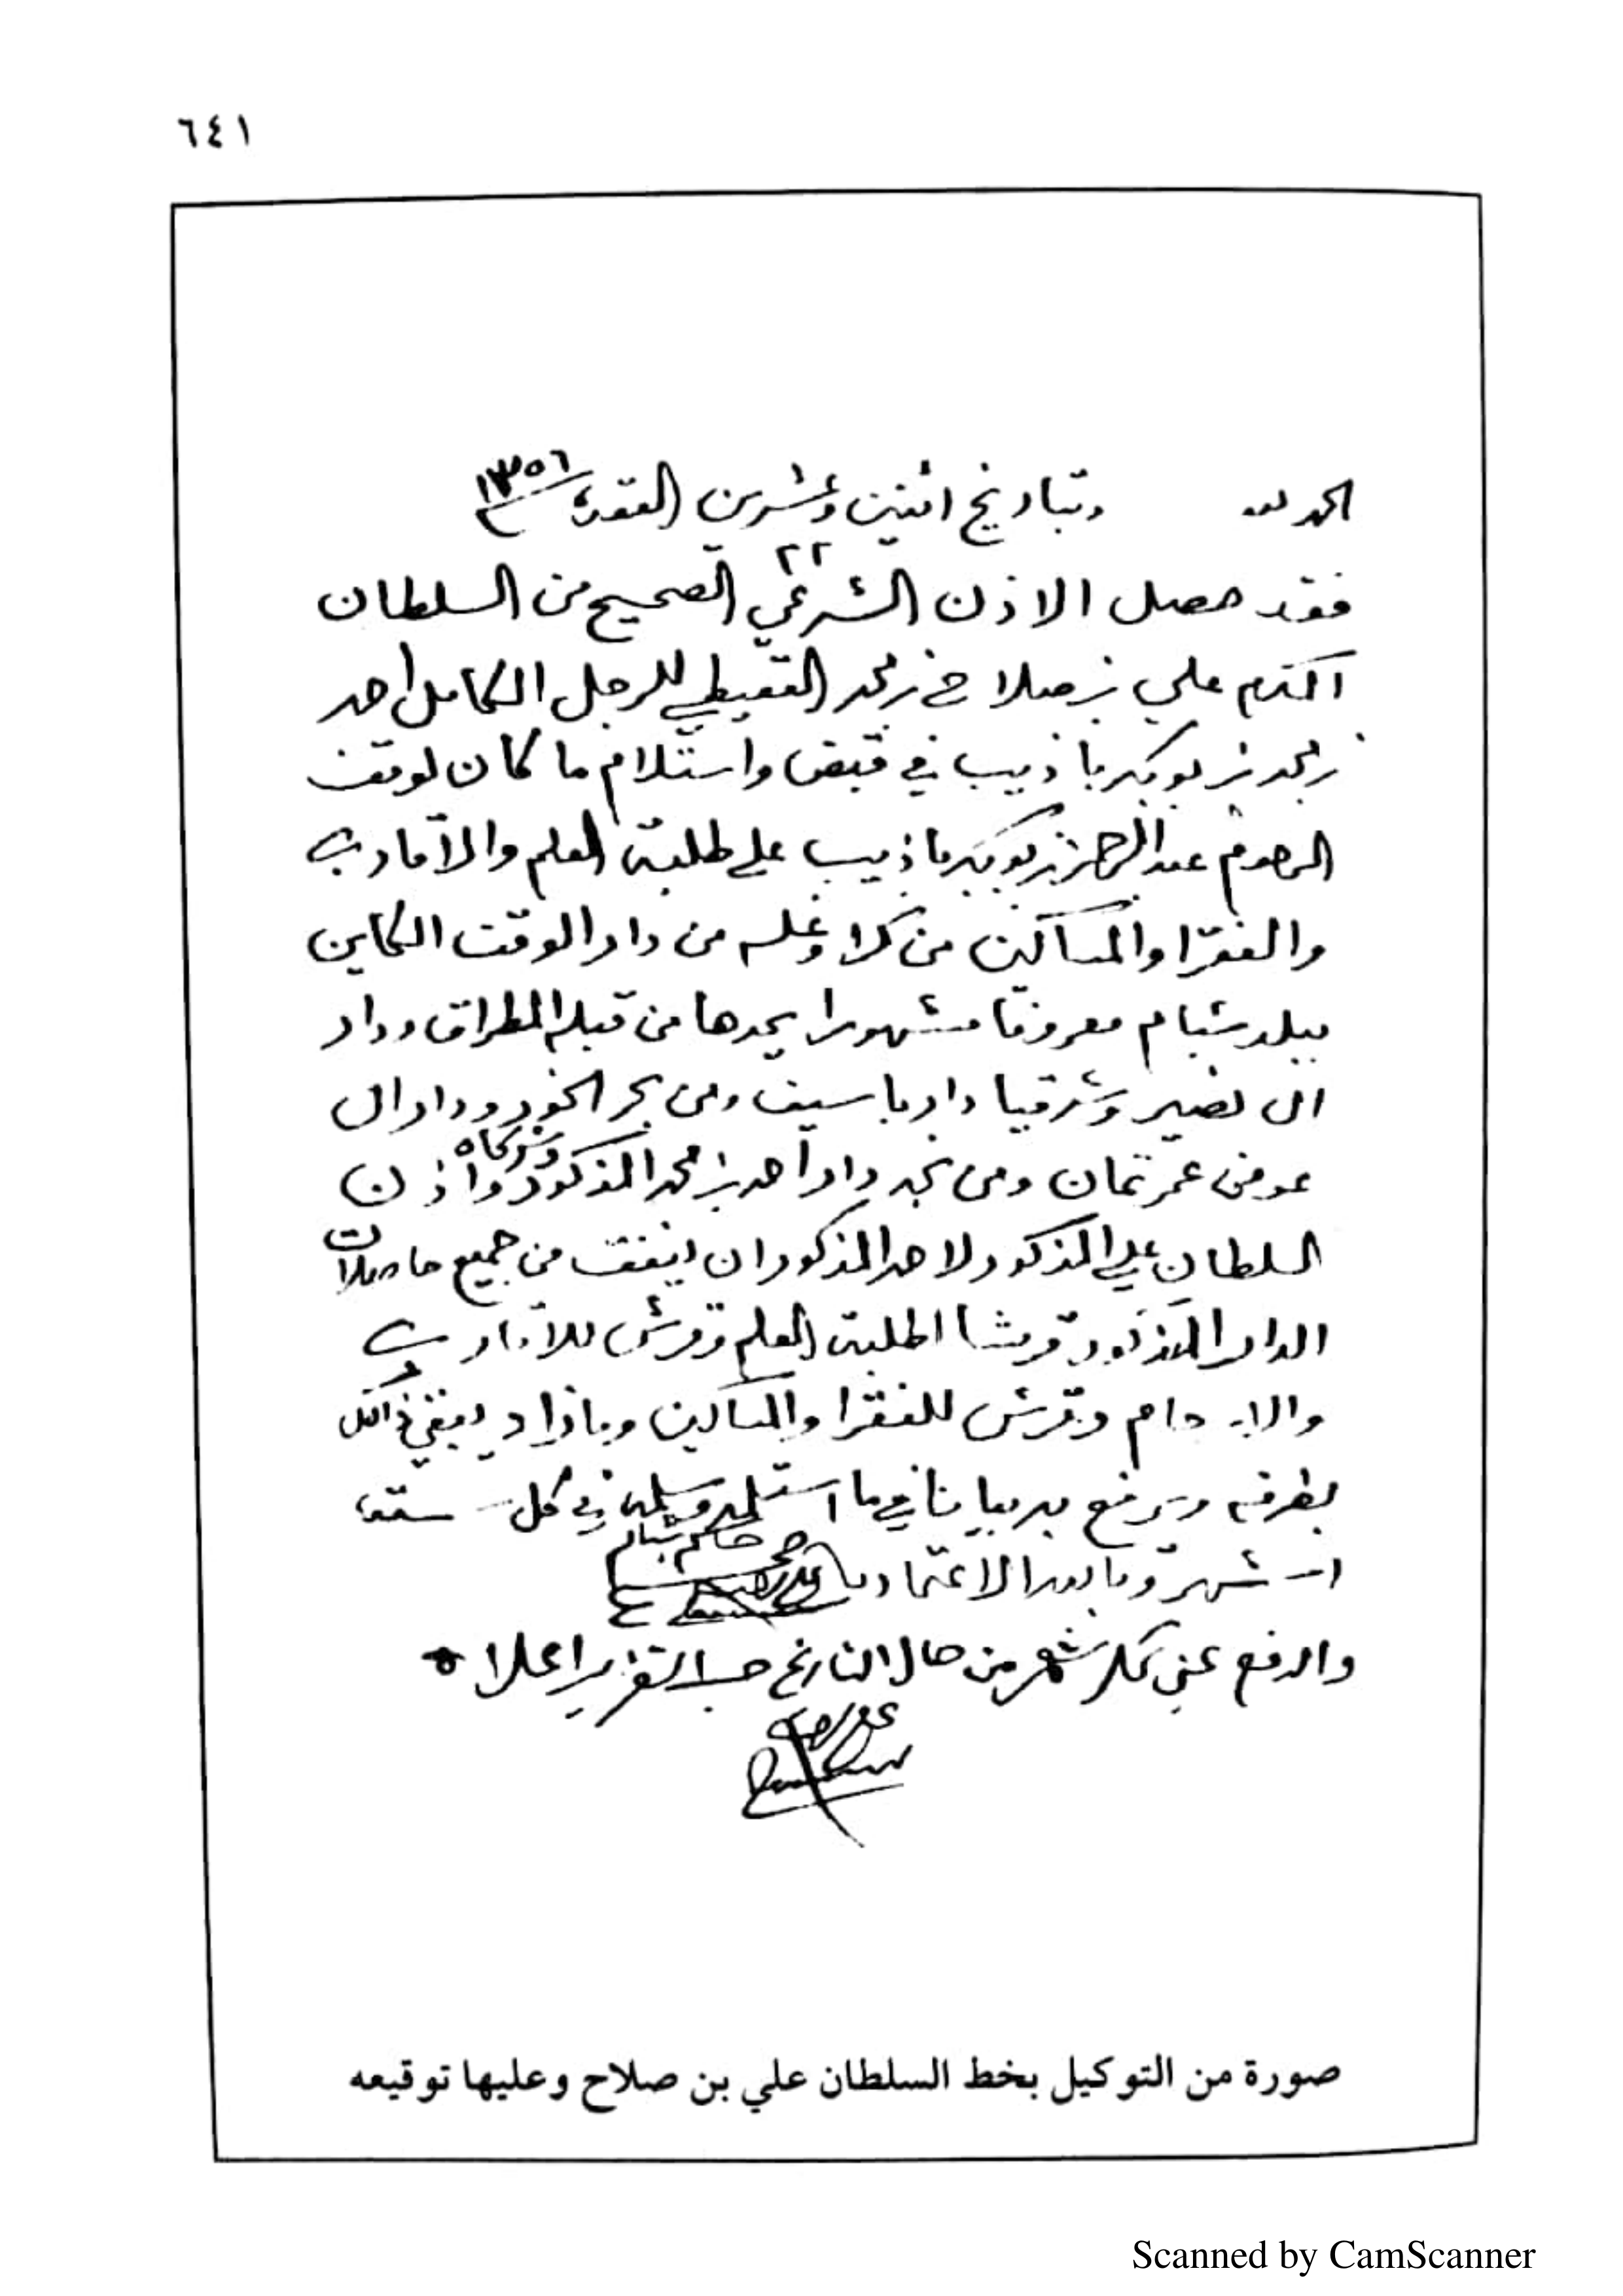 ٦٤١
الحمد لله وبتاريخ اثنين وعشرين القعدة ١٣٥٦
٢٢
فقد حصل الاذن الشرعي الصحيح من السلطان
المكرم علي بن صلاح بن محمد القعيطي للرجل الكامل احمد
بن محمد بن بوبكر باذيب في قبض واستلام ما كان لوقف
المرحوم عبدالرحمن بن بوبكر باذيب على طلبة العلم والاقارب
والفقرا والمساكين من كرا وغلة من دار الوقف الكاين
ببلد شبام معروفا مشهورا يحدها من قبله المطراق ودار
ال نصير وشرقيا دار باسيف ومن بحر الخور ودار ال
عوض عمر ثمان ومن نجد دار احمد بن محمد المذكور وشركاه واذن
السلطان علي المذكور لاحمد المذكور ان ينفق من جميع حاصلات
الدار المذكور قرشا لطلبة العلم وقرش للاقارب
والارحام وقرش للفقرا والمساكين وما زاد يبقي ذالك
بطرفه ويرفع به بيانا في ما استلمه وسلمه في كل ستة
اشهر وما بعد الاعتماد
حاكم شبام
والدفع عن كل شهر من حال التاريخ حسب التقرير اعلاه
صورة من التوكيل بخط السلطان علي بن صلاح وعليها توقيعه
Scanned by CamScanner